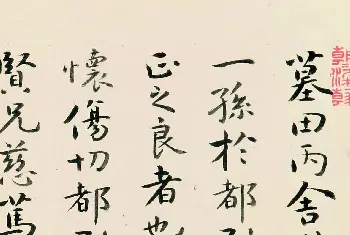 墓田丙舍
一孫於都
正之良者
懷傷切都
賢兄慈篤